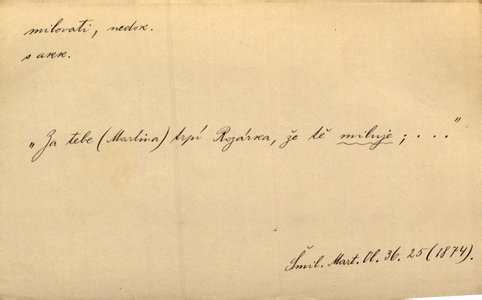 milovati, nedok.
s akk.
„Za tebe (Martina) trpí Rozárka, že tě miluje; . . .“
Šmil. Mart. Ol. 36. 25 (1874).